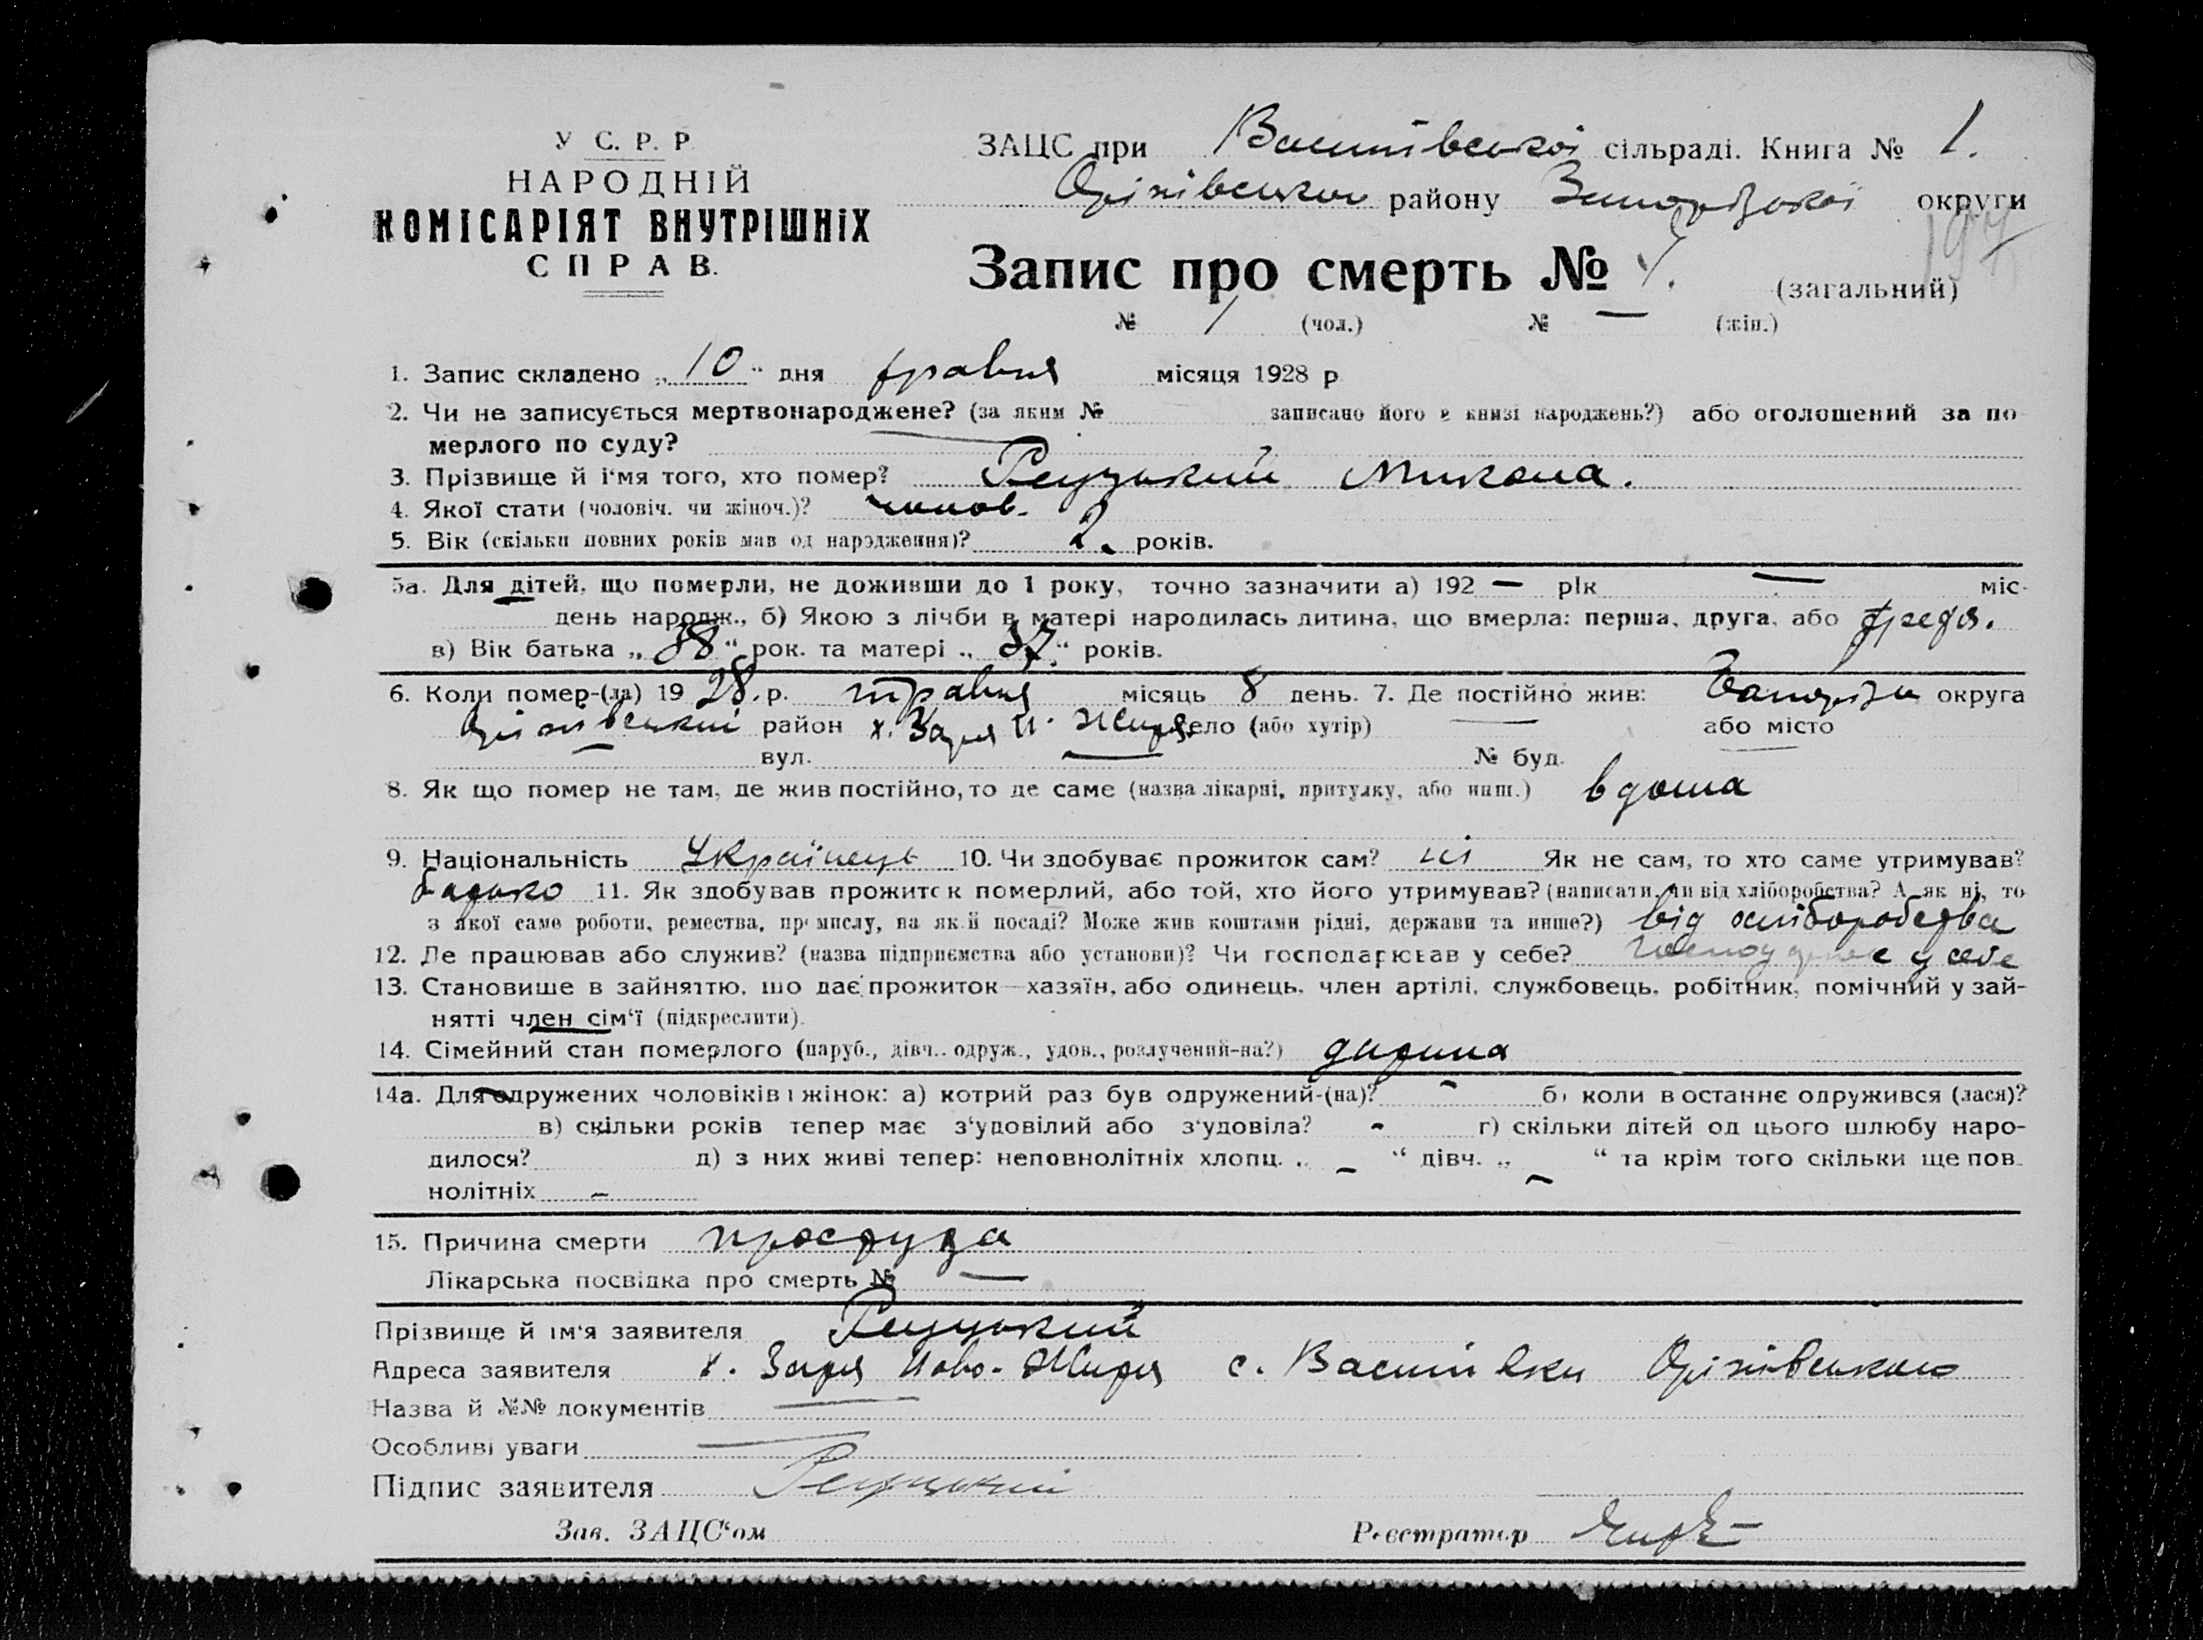 У С. Р. Р.
НАРОДНІЙ
КОМІСАРІЯТ ВНУТРІШНІХ
СПРАВ.
ЗАЦС при Василівській сільраді. Книга № 1.
Оріхівського району Запорізької округи
197
Запис про смерть № (загальний)
№ 1 (чол.) № — (жін.)
1. Запис складено „10“ дня травня місяця 1928 р
2. Чи не записується мертвонароджене? (за яким № записано його в книзі народжень?) або оголошений за по
мерлого по суду? —
3. Прізвище й і‘мя того, хто помер? Рецуький Микола.
4. Якої стати (чоловіч. чи жіноч.)? чолов.
5. Вік (скільки повних років мав од народження)? 2. років.
5а. Для дітей, що померли, не доживши до 1 року, точно зазначити а) 192 — рік — міс-
день народж., б) Якою з лічби в матері народилась дитина, що вмерла: перша, друга, або третя.
в) Вік батька „38“ рок. та матері „37“ років.
6. Коли помер-(ла) 19 28. р. травня місяць 8 день. 7. Де постійно жив: Запоріжж округа
Оріхівський район х. Заря Н. Жиря село (або хутір) — або місто —
— вул. — № буд.
8. Як що помер не там, де жив постійно, то де саме (назва лікарні, притулку, або инш.) вдома
9. Національність Українець 10. Чи здобуває прожиток сам? ні Як не сам, то хто саме утримував?
батько 11. Як здобував прожиток померлий, або той, хто його утримував? (написати, чи від хліборобства? А як ні, то
з якої саме роботи, ремества, промислу, на якій посаді? Може жив коштами рідні, держави та инше?) від хліборобства
12. Де працював або служив? (назва підприємства або установи)? Чи господарював у себе? у себе
13. Становише в зайняттю, що дає прожиток—хазяїн, або одинець, член артілі, службовець, робітник, помічний у зай-
нятті член сім‘ї (підкреслити).
14. Сімейний стан померлого (паруб., дівч., одруж., удов., розлучений-на?) дитина
14а. Для одружених чоловіків і жінок: а) котрий раз був одружений-(на)? - б) коли в останнє одружився (лася)?
в) скільки років тепер має з‘удовілий або з‘удовіла? - г) скільки дітей од цього шлюбу наро-
дилося? д) з них живі тепер: неповнолітніх хлопц. „ — “ дівч. „ — “ та крім того скільки ще пов-
нолітніх —
15. Причина смерти простуда
Лікарська посвідка про смерть № —
Прізвище й ім‘я заявителя Рецуький
Адреса заявителя х. Заря Ново-Жиря с. Василівки Оріхівського
Назва й №№ документів —
Особливі уваги —
Підпис заявителя Рецуький
Зав. ЗАЦС‘ом Реєстратор